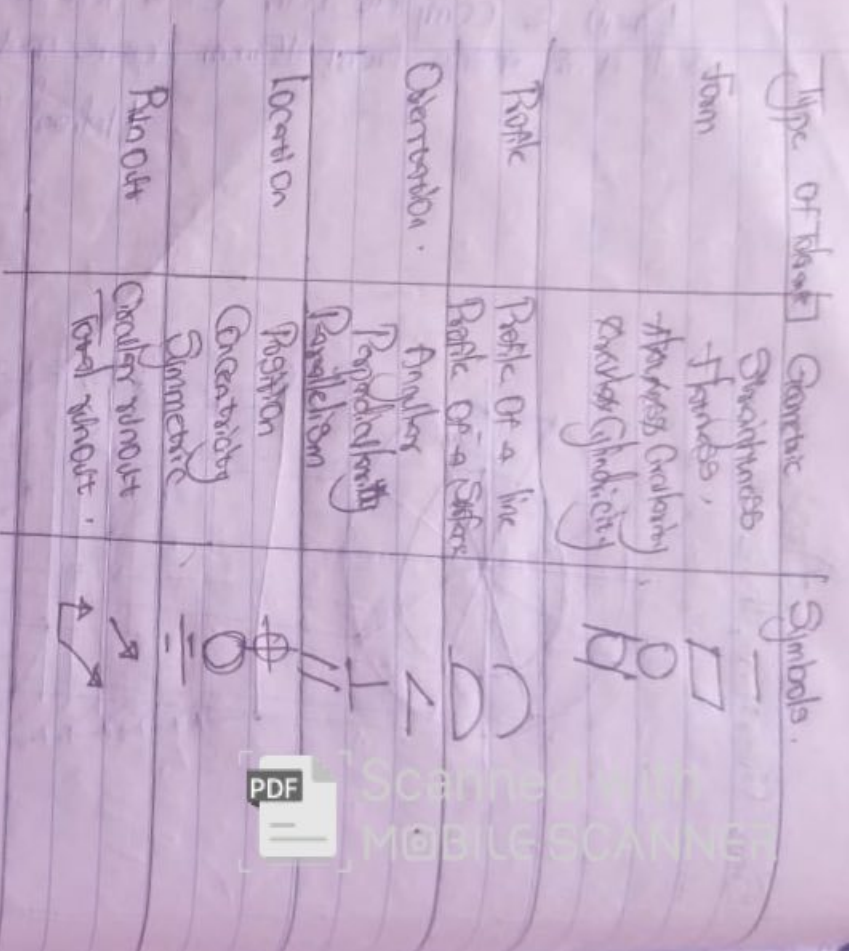 Type of Toleranc Geometric Symbols.
form Straintness —
-Flatness, ▱
Circularity, ○
Cylindicity ⌭
Profile Profile of a line ⌒
Profile of a Surface ⌓
Orientation. Angular ∠
Perpendicularity ⊥
Parallelism //
Location Position ⌖
Concentricity ◎
Symmetric ⌯
Runout Circular runout ↗
Total runout. ⌰
PDF Scanned with
MOBILE SCANNER